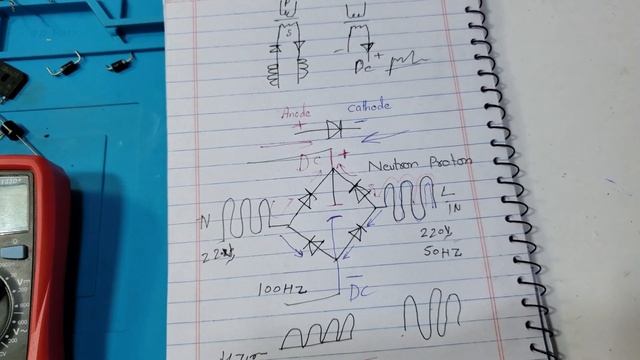 P
S
- +
Dc
Anode Cathode
+ -
DC +
Neutron Proton
N
L
IN
220V
220V
50HZ
100HZ
DC